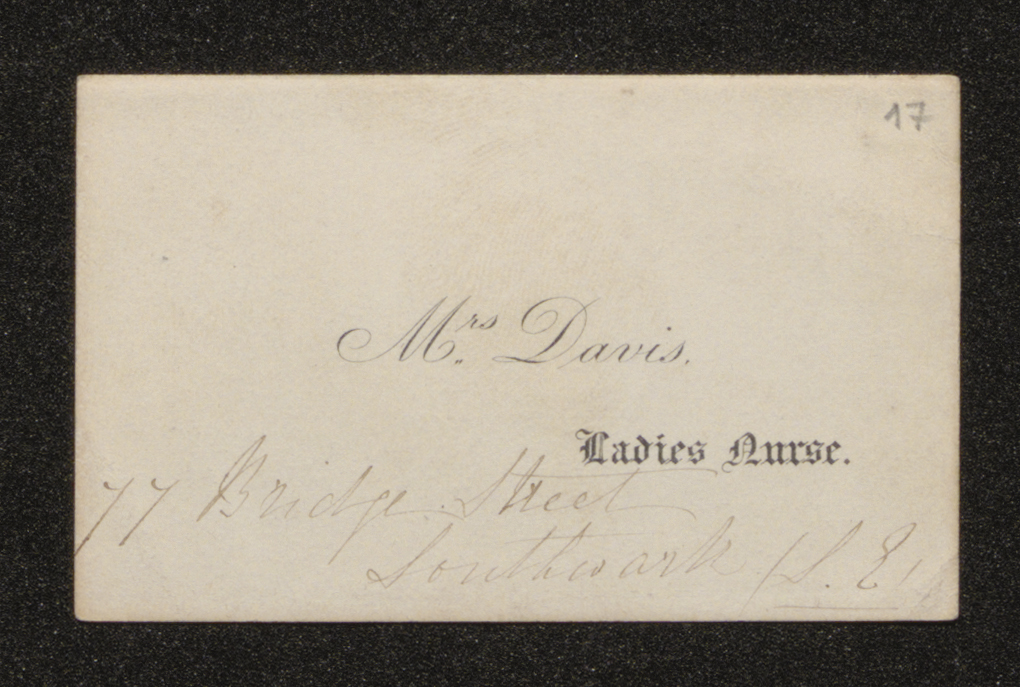 17
Mrs Davis.
Ladies Nurse.
77 Bridge Street
Southwark (S. E)